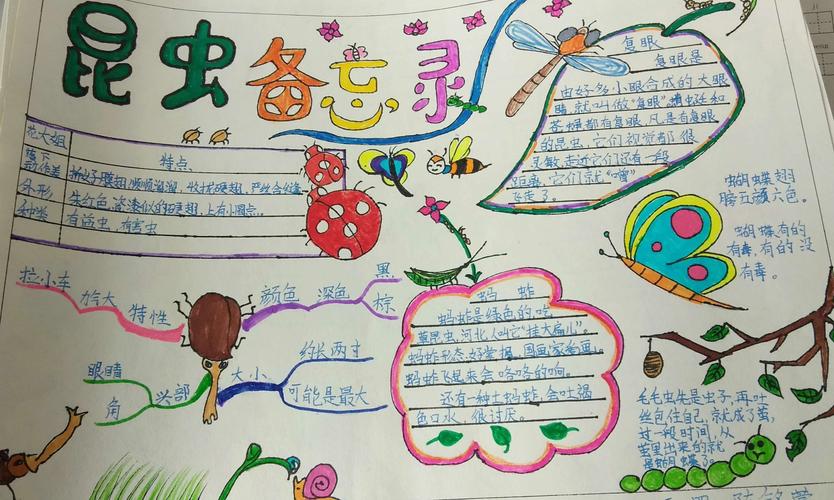 昆虫备忘录
复眼
复眼是
由好多小眼合成的大眼
睛,就叫做"复眼",蜻蜓和
苍蝇都有复眼,凡是有复眼
的昆虫,它们视觉都很
灵敏,走近它们还有一段
距离,它们就"噌"
飞走了。
花大姐
特点
落下
动作美
折好膜翅,顺顺溜溜,收拢硬翅,严丝合缝
外形
朱红色,瓷漆似的硬翅,上有小圆点。
种类
有益虫,有害虫
蝴蝶翅
膀五颜六色。
蝴蝶有的
有毒,有的没
有毒。
拉小车
力气大
特性
颜色
深色
黑
棕
眼睛
角
头部
大小
约长两寸
可能是最大
蚂蚱
蚂蚱是绿色的,吃
昆虫,河北人叫它"挂大扁儿"。
蚂蚱形态好掌握,国画家爱画。
蚂蚱飞起来会咯咯的响。
还有一种土蚂蚱,会吐褐
色口水,很讨厌。
毛毛虫先是虫子,再吐
丝包住自己,就成了茧,
过一段时间,从
茧里出来的就
是蝴蝶了。